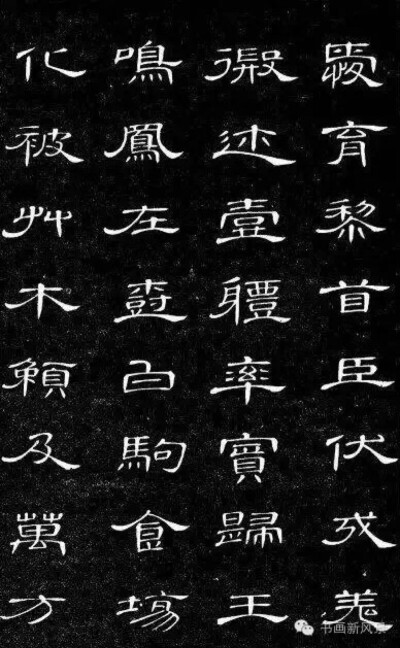 愛育黎首臣伏戎羌
徦迩壹軆率賓歸王
鳴鳳在尌白駒食場
化被艸木賴及萬方
书画新风景